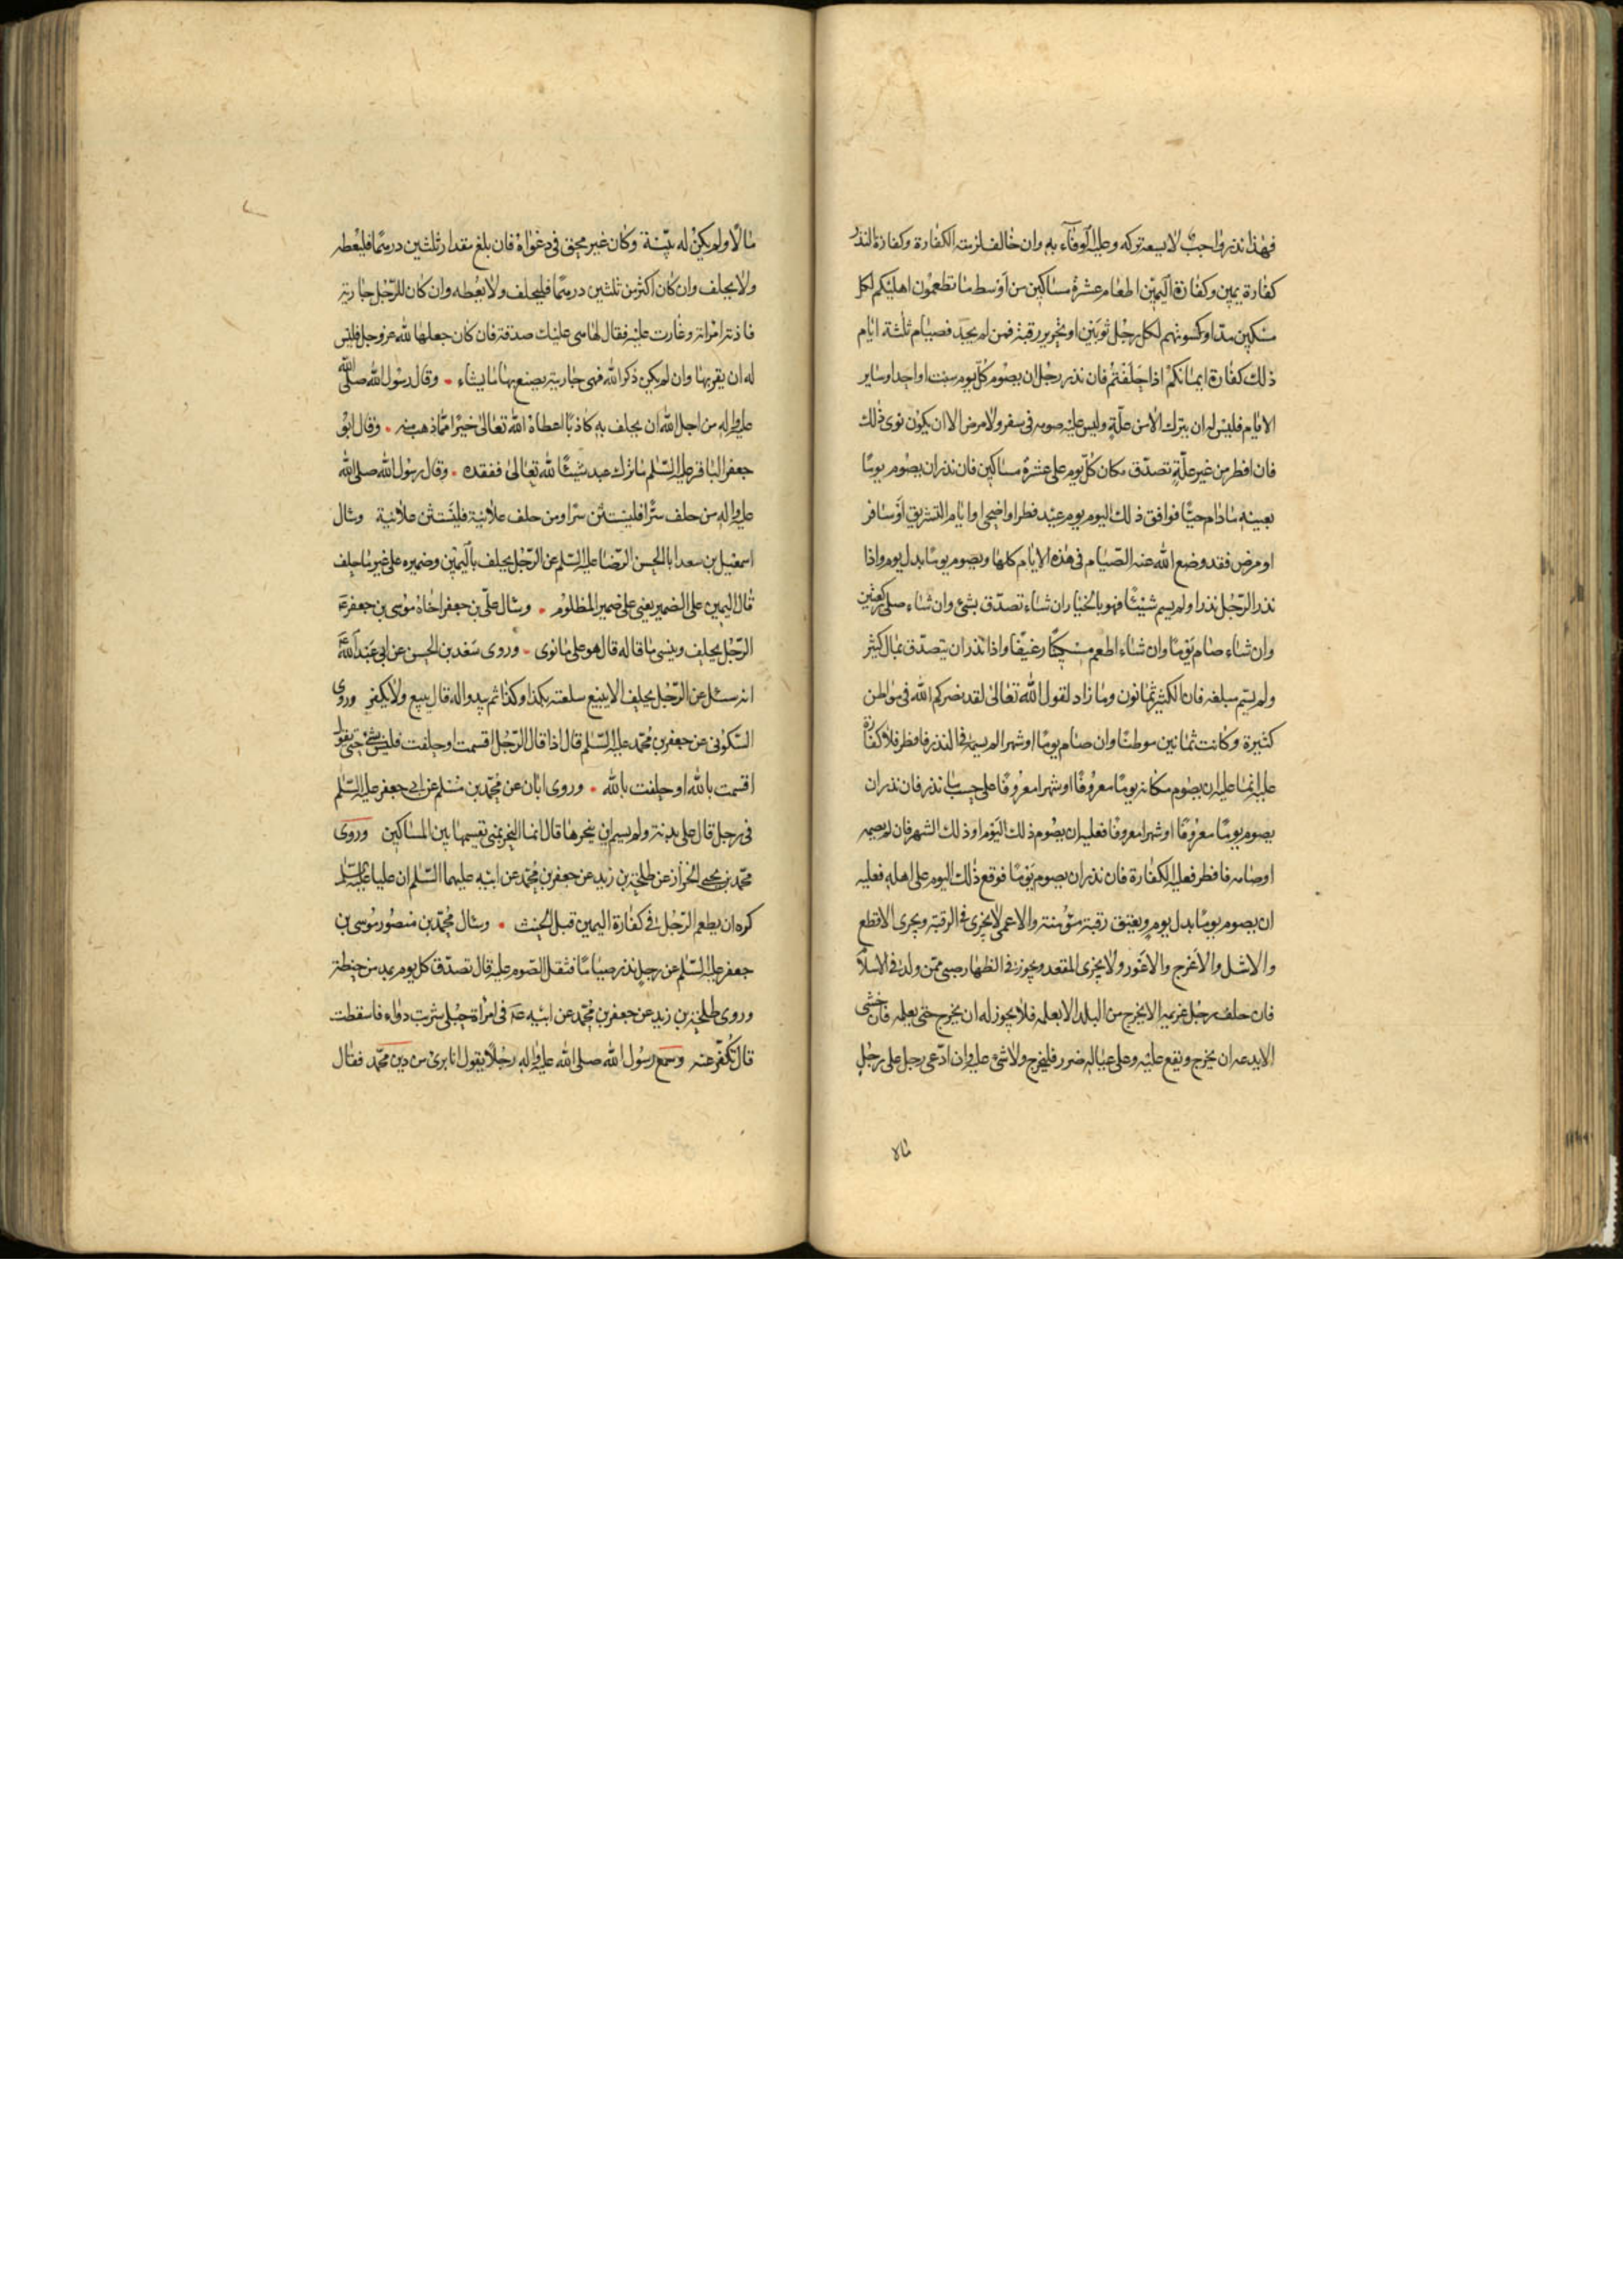 فهذا نذر واجب لا يسعه تركه وعليه الوفاء به وان خالف لزمته الكفارة وكفارة النذر
كفارة يمين وكفارة اليمين اطعام عشرة مساكين من اوسط ما تطعمون اهليكم لكل
مسكين مد او كسوتهم لكل رجل ثوبين او تحرير رقبة فمن لم يجد فصيام ثلثة ايام
ذلك كفارة ايمانكم اذا حلفتم فان نذر رجل ان يصوم كل يوم سبت او احد او ساير
الايام فليس له ان يتركه الا من علة وليس عليه صومه في سفر ولا مرض الا ان يكون نوى ذلك
فان افطر من غير علة تصدق مكان كل يوم على عشرة مساكين فان نذر ان يصوم يوما
بعينه مادام حيا فوافق ذلك اليوم يوم عيد فطر او اضحى او ايام التشريق او سافر
او مرض فقد وضع الله عنه الصيام في هذه الايام كلها ويصوم يوما بدل يوم واذا
نذر الرجل نذرا ولم يسم شيئا فهو بالخيار ان شاء تصدق بشئ وان شاء صلى ركعتين
وان شاء صام يوما وان شاء اطعم مسكينا رغيفا واذا نذر ان يتصدق بمال كثير
ولم يسم مبلغه فان الكثير ثمانون وما زاد لقول الله تعالى لقد نصركم الله في مواطن
كثيرة وكانت ثمانين موطنا وان صام يوما او شهرا لم يسمه في النذر فافطر فلا كفارة
عليه انما عليه ان يصوم مكانه يوما معروفا او شهرا معروفا على حسب ما نذر فان نذر ان
يصوم يوما معروفا او شهرا معروفا فعليه ان يصوم ذلك اليوم او ذلك الشهر فان لم يصمه
او صامه فافطر فعليه الكفارة فان نذر ان يصوم يوما فوقع ذلك اليوم على اهله فعليه
ان يصوم يوما بدل يوم ويعتق رقبة مؤمنة والاعمى لا يجزى في الرقبة ويجزى الاقطع
والاشل والاعرج والاعور ولا يجزى المقعد ويجوز في الظهار صبى ممن ولد في الاسلام
فان حلف رجل غريمه الا يخرج من البلد الا بعلمه فلا يجوز له ان يخرج حتى يعلمه فان خشى
الا يدعه ان يخرج ويقع عليه وعلى عياله ضرر فليخرج ولا شئ عليه وان ادعى رجل على رجل
مالا
مالا ولم يكن له بينة وكان غير محق في دعواه فان بلغ مقدار ثلثين درهما فليعطه
ولا يحلف وان كان اكثر من ثلثين درهما فليحلف ولا يعطه وان كان للرجل جارية
فاذته امرأته وغارت عليه فقال لها هي عليك صدقة فان كان جعلها لله عز وجل فليس
له ان يقربها وان لم يكن ذكر الله فهى جاريته يصنع بها ما يشاء وقال رسول الله صلى الله
عليه واله من اجل الله ان يحلف به كاذبا اعطاه الله تعالى خيرا مما ذهب منه وقال ابو
جعفر الباقر عليه السلم ما ترك عبد شيئا لله تعالى ففقده وقال رسول الله صلى الله
عليه واله من حلف سرا فليستثن سرا ومن حلف علانية فليستثن علانية وسال
اسمعيل بن سعد ابا الحسن الرضا عليه السلم عن الرجل يحلف باليمين وضميره على غير ما حلف
قال اليمين على الضمير يعنى على ضمير المظلوم وسال على بن جعفر اخاه موسى بن جعفر ع
الرجل يحلف وينسى ما قاله قال هو على ما نوى وروى سعد بن الحسن عن ابى عبد الله ع
انه سئل عن الرجل يحلف الا يبيع سلعته بكذا وكذا ثم يبدو اله قال يبيع ولا يكفر وروى
السكونى عن جعفر بن محمد عليه السلم قال اذا قال الرجل اقسمت او حلفت فليس بشئ حتى يقول
اقسمت بالله او حلفت بالله وروى ابان عن محمد بن مسلم عن ابى جعفر عليه السلم
في رجل قال على بدنة ولم يسم اين ينحرها قال انما النحر بمنى تقسيمها بين المساكين وروى
محمد بن يحيى الخزاز عن طلحة بن زيد عن جعفر بن محمد عن ابيه عليهما السلم ان عليا عليه السلم
كره ان يطعم الرجل في كفارة اليمين قبل الحنث وسال محمد بن منصور موسى بن
جعفر عليه السلم عن رجل نذر صياما فثقل الصوم عليه قال تصدق كل يوم بمد من حنطة
وروى طلحة بن زيد عن جعفر بن محمد عن ابيه ع في امرأة حبلى شربت دواء فاسقطت
قال تكفر عنه وسمع رسول الله صلى الله عليه واله رجلا يقول انا برئ من دين محمد فقال